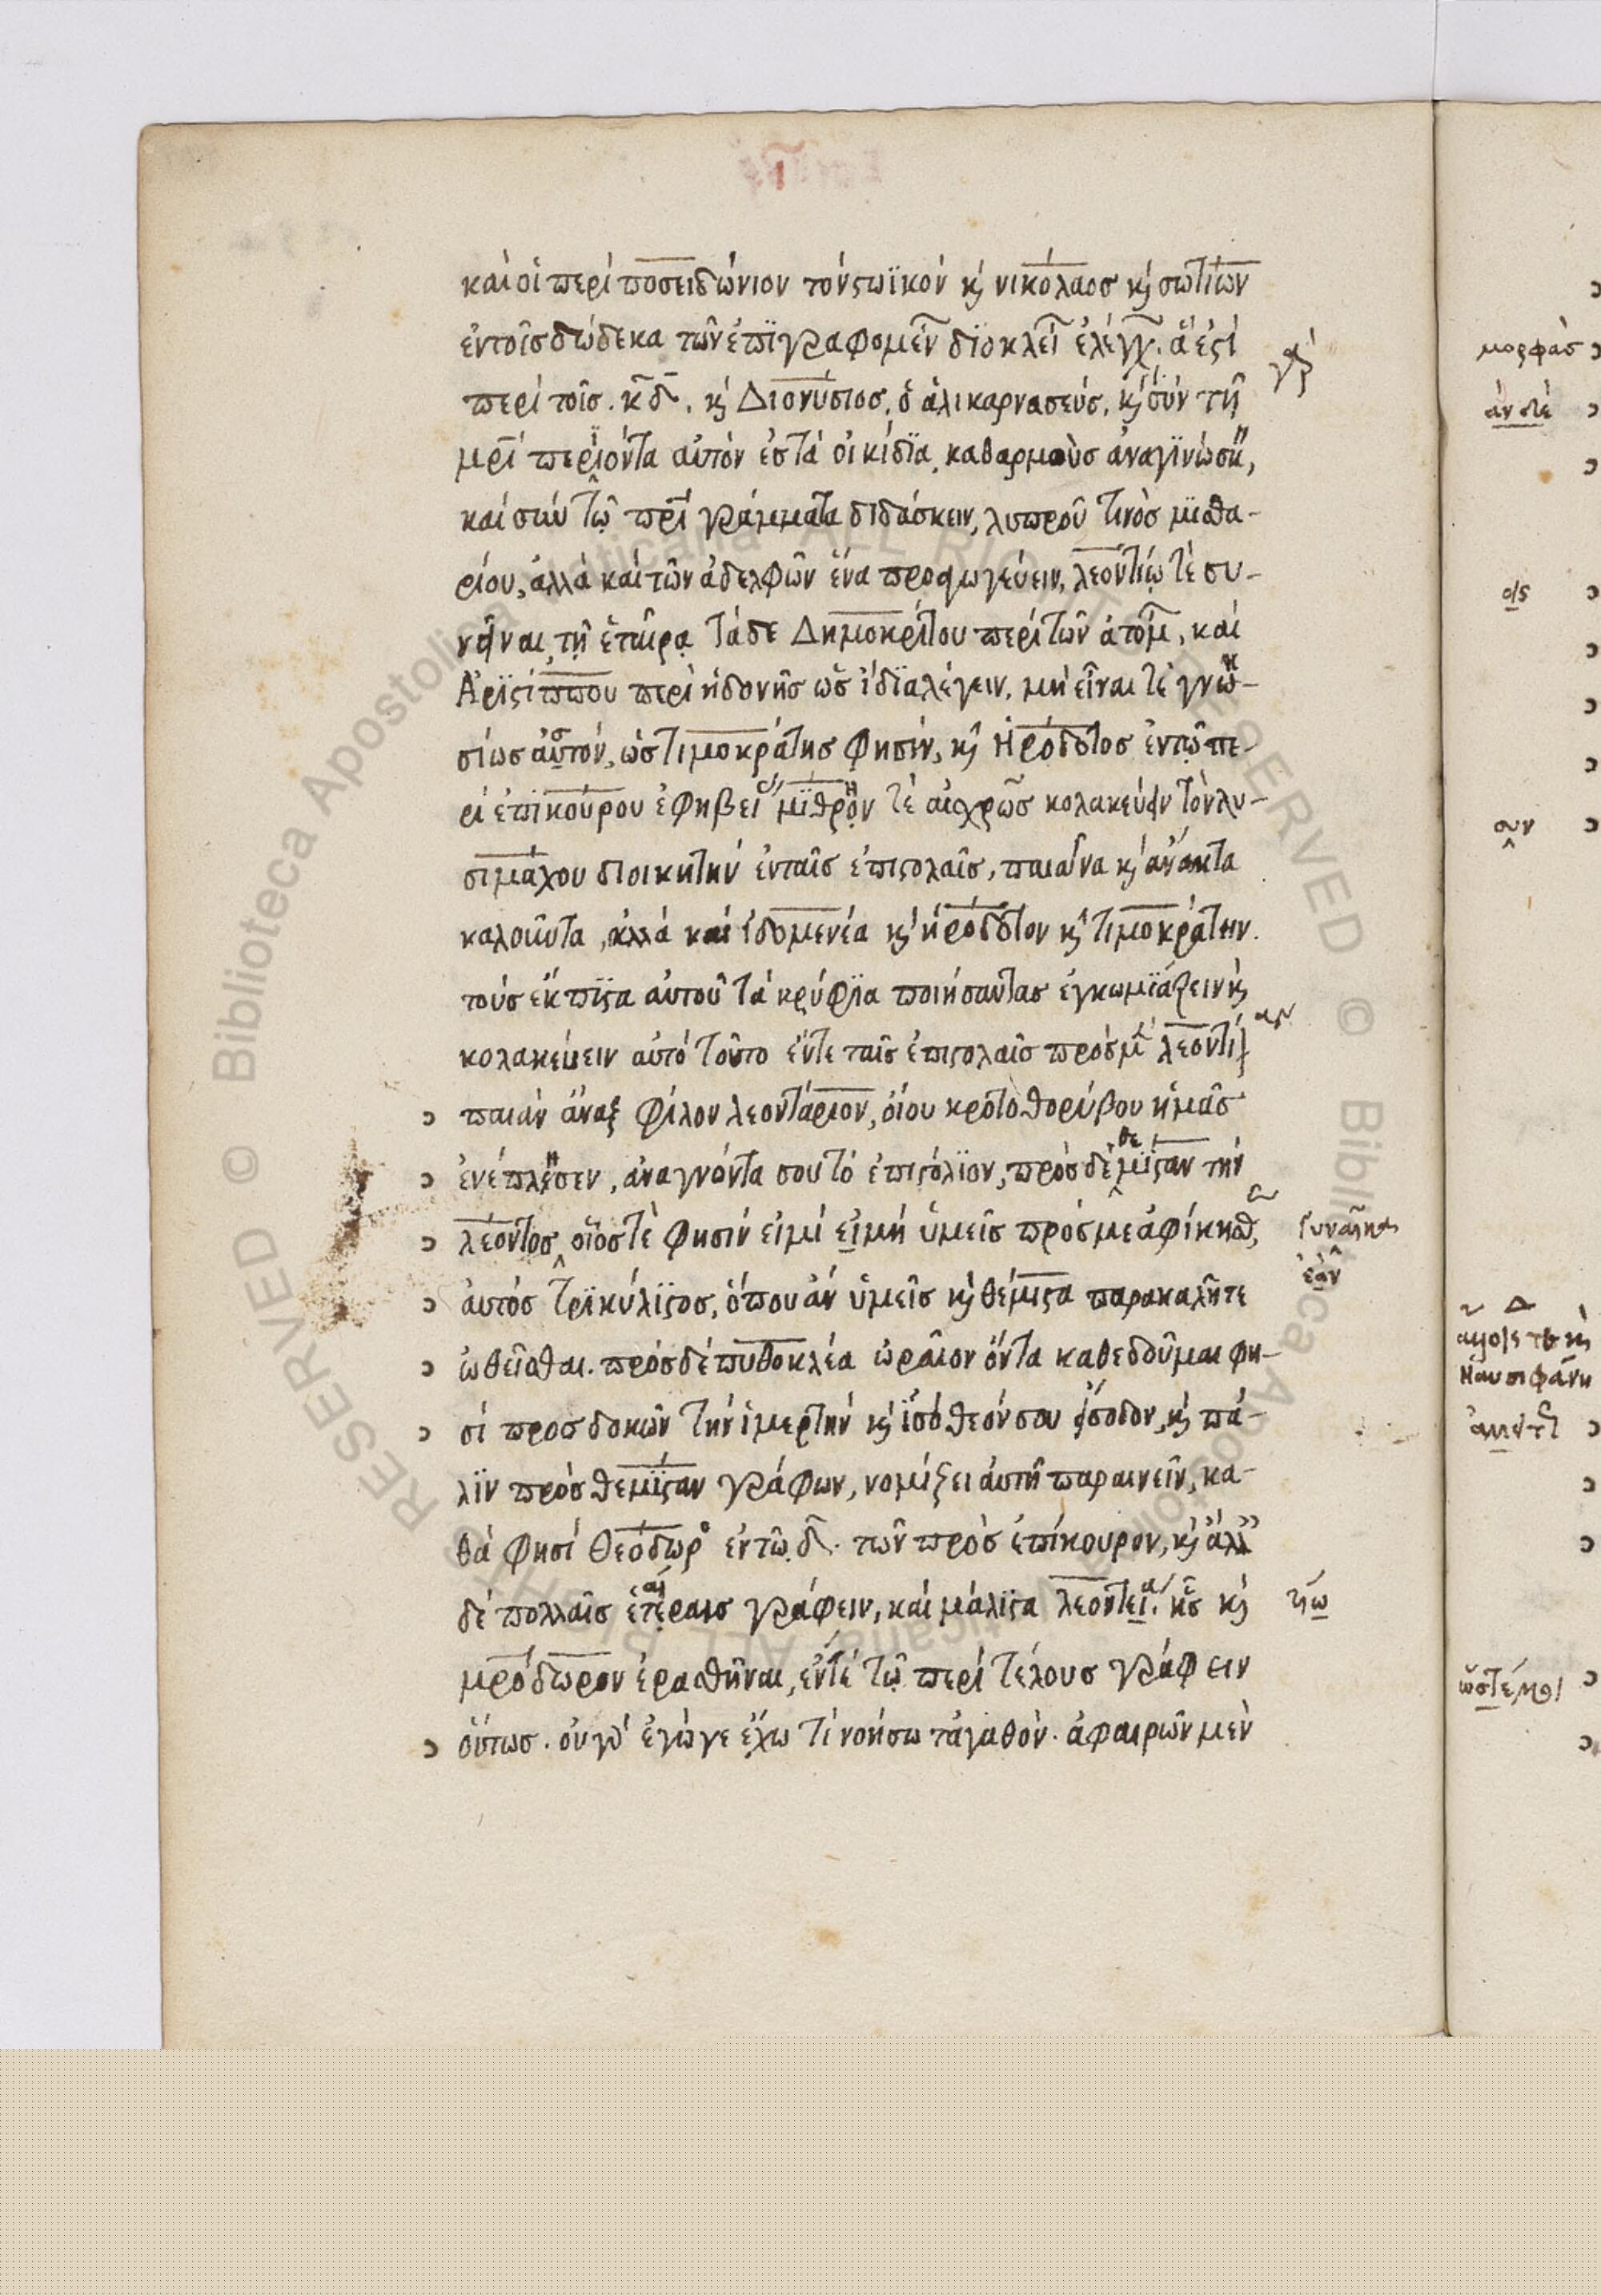 καὶ οἱ περὶ ποσειδώνιον τὸν στωϊκὸν κ̀ νικόλαος κ̀ σωτίων
ἐν τοῖς δώδεκα τῶν ἐπιγραφομέν διοκλεί ἐλέγχ. ἅ ἐστι
περὶ τοῖς κδ. κ̀ Διονύσιος, ὁ ἁλικαρνασεύς, κ̀ σὺν τῇ
μρι περιϊόντα αὐτὸν ἐς τὰ οἰκίδια, καθαρμοὺς ἀναγινώσκ,
καὶ σὺν τῷ πρι γράμματα διδάσκειν, λυπροῦ τινὸς μισθα-
ρίου, ἀλλὰ καὶ τῶν ἀδελφῶν ἕνα προαγωγεύειν, λεοντίῳ τὲ συ-
νῆναι τῇ ἑταίρᾳ τὰ δὲ Δημοκρίτου περὶ τῶν ἀτόμ, καὶ
Ἀριστίππου περὶ ἡδονῆς ὡς ἴδια λέγειν. μὴ εἶναι τὲ γνη-
σίως ἀστόν, ὡς τιμοκράτης φησὶν, κ̀ Ἡρόδοτος ἐν τῷ πε-
ρὶ ἐπικούρου ἐφηβεί μίθρην τὲ αἰσχρῶς κολακεύειν τὸν λυ-
σιμάχου διοικητὴν ἐν ταῖς ἐπιστολαῖς, παιᾶνα κ̀ ἄνακτα
καλοῦντα, ἀλλὰ καὶ ἰδομενέα κ̀ ἡρόδοτον κ̀ τιμοκράτην.
τοὺς ἔκπιστα αὐτοῦ τὰ κρύφια ποιήσαντας ἐγκωμιάζειν κ̀
κολακεύειν αὐτὸ τοῦτο ἔν τε ταῖς ἐπιστολαῖς πρὸς μ λεόντι
παιὰν ἄναξ φίλον λεοντάριον, οἵου κροτοθορύβου ἡμᾶς
ἐνέπλησεν, ἀναγνόντα σου τὸ ἐπιστόλιον, πρὸς δὲ θεμίσταν τὴν
λέοντος οἷός τε φησὶν εἰμὶ εἰ μὴ ὑμεῖς πρός με ἀφίκησθ γυναῖκα
αὐτὸς τρικύλιστος, ὅπου ἂν ὑμεῖς κ̀ θέμιστα παρακαλῆτε ἐὰν
ὠθεῖσθαι. πρὸς δὲ πυθοκλέα ὡραῖον ὄντα καθεδοῦμαι φη-
σὶ προσδοκῶν τὴν ἱμερτὴν κ̀ ἰσόθεόν σου εἴσοδον, κ̀ πά-
λιν πρὸς θεμίσταν γράφων, νομίζει αὐτῇ παραινεῖν, κα-
θά φησι Θεόδωρ ἐν τῷ δ. τῶν πρὸς ἐπίκουρον, κ̀ ἄλλ
δὲ πολλαῖς ἑταίραις γράφειν, καὶ μάλιστα λεοντεί. ἧς κ̀
μρόδωρον ἐρασθῆναι, ἔν τε τῷ περὶ τέλους γράφειν
οὕτως. οὐ γὰρ ἔγωγε ἔχω τί νοήσω τἀγαθόν. ἀφαιρῶν μὲν
μορφὰς
συν
Ναυσιφάνη